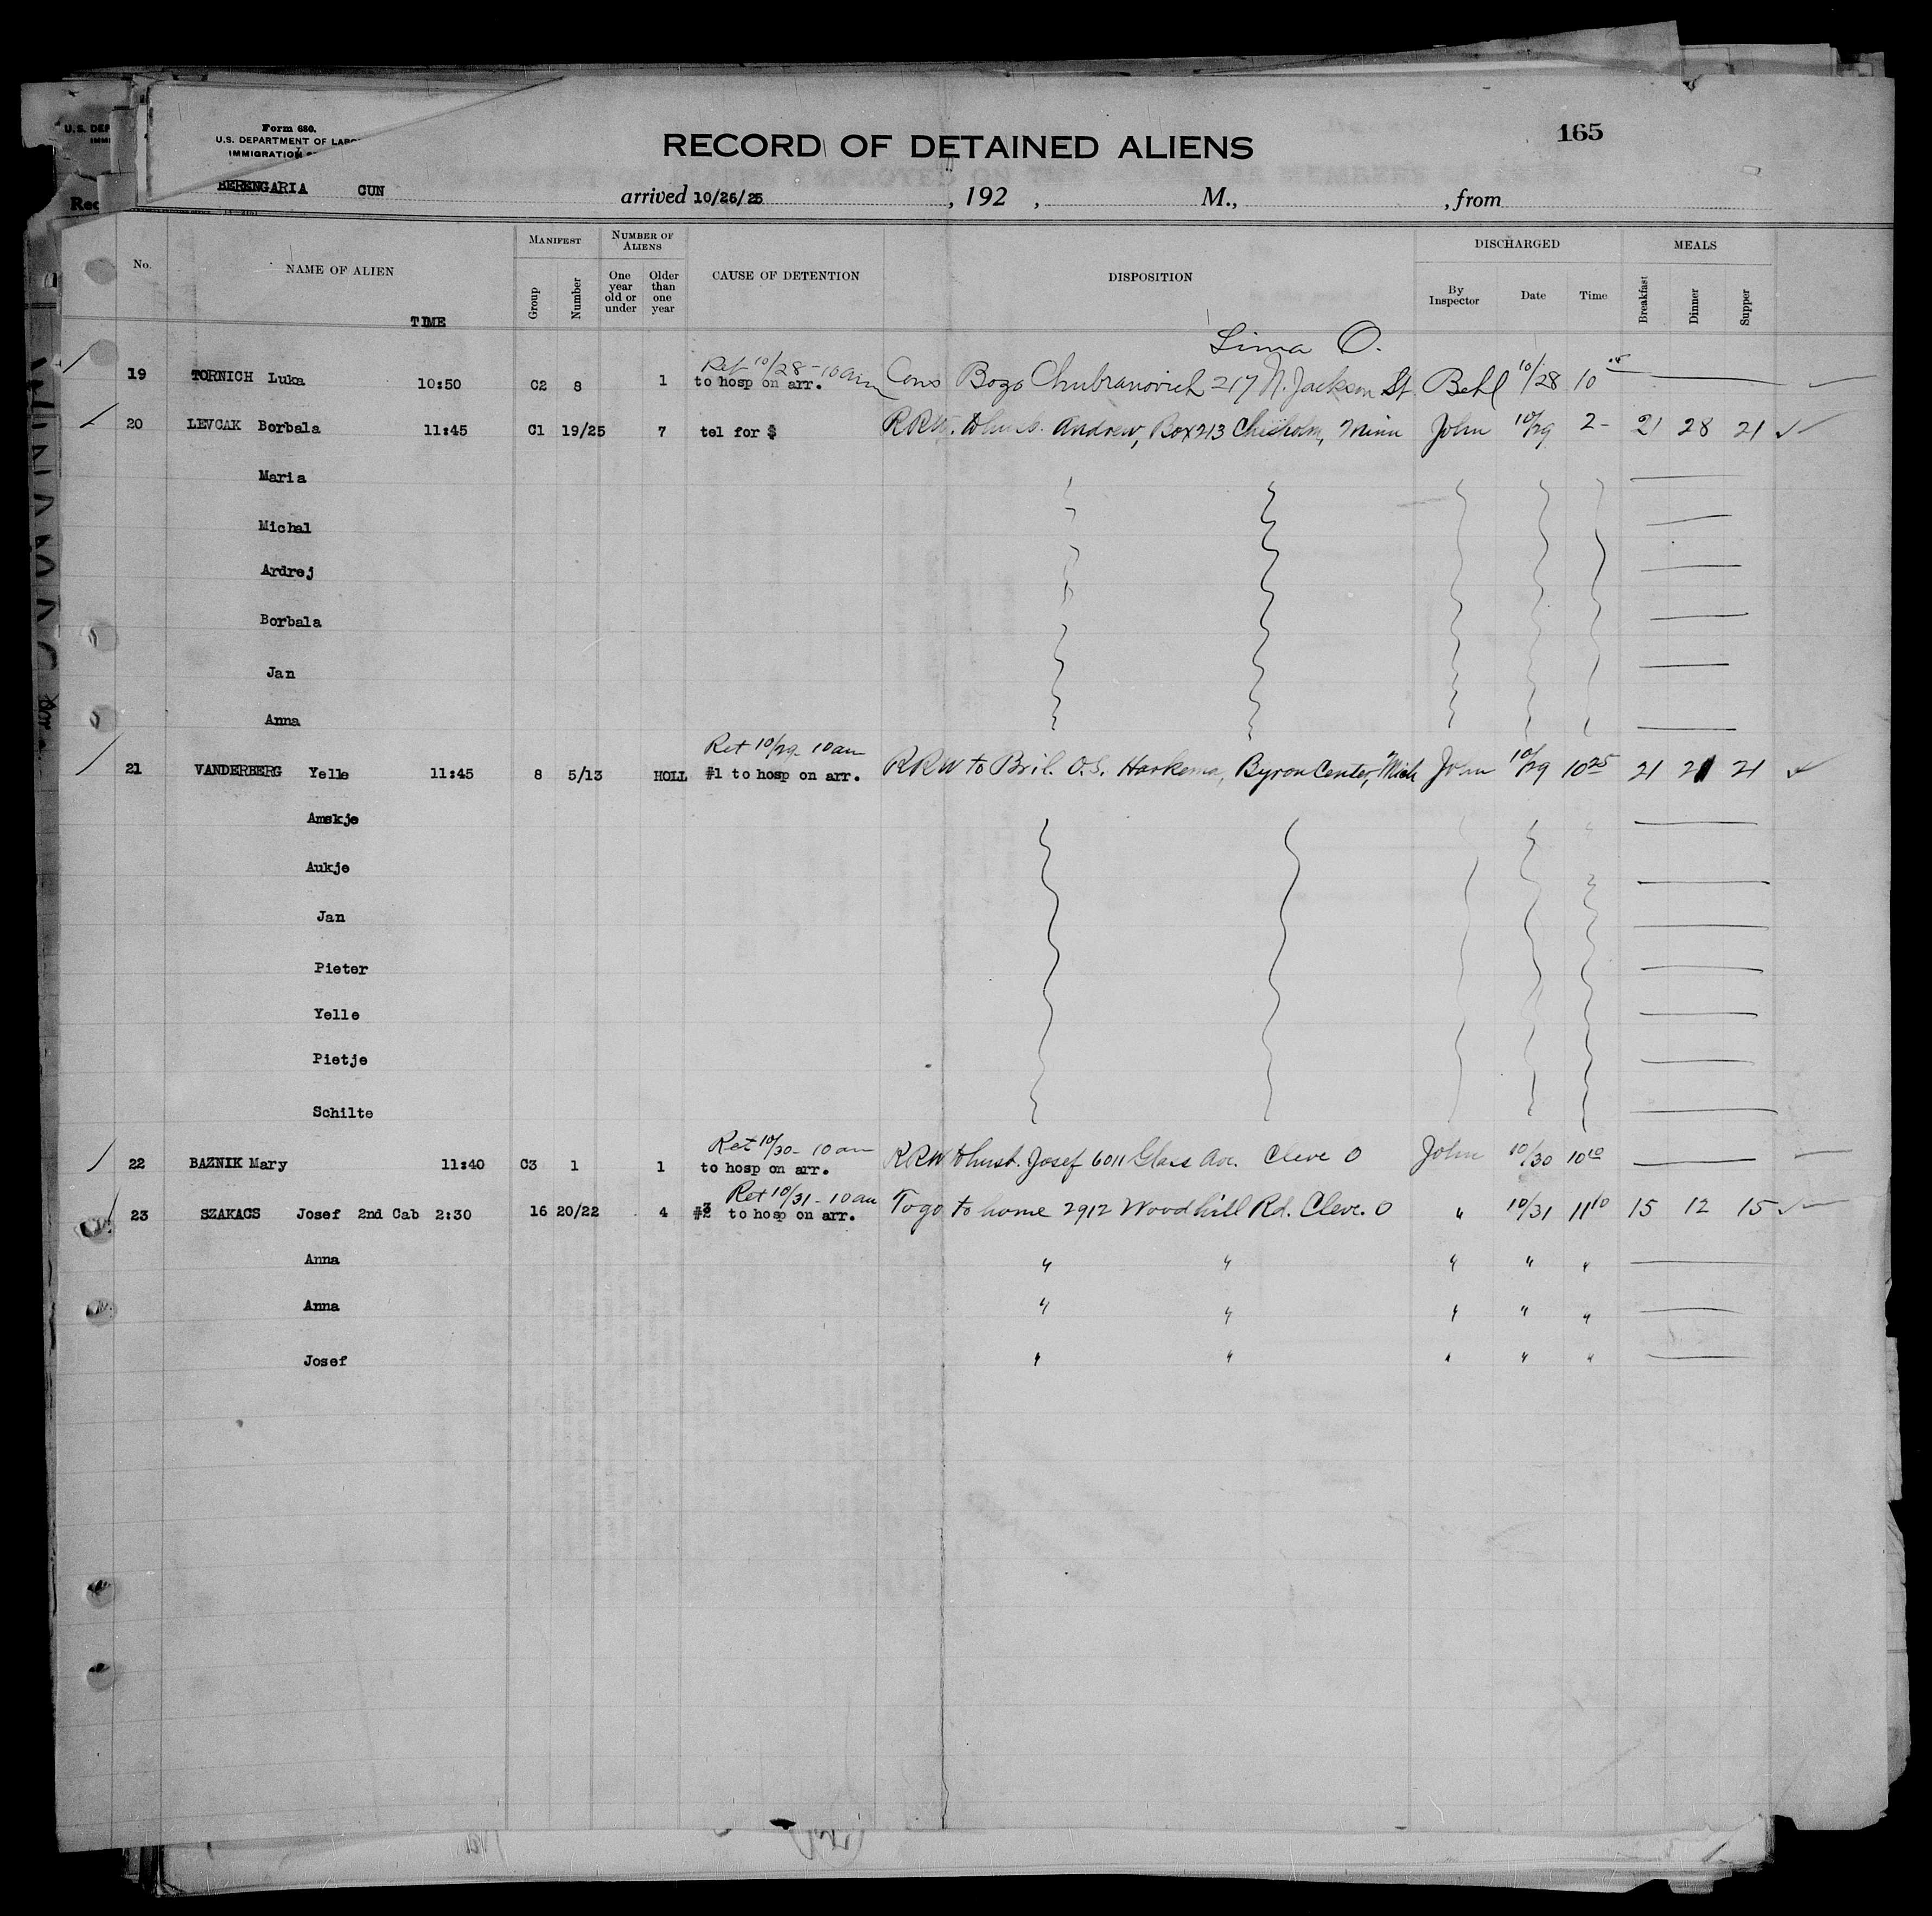 Form 680.
U.S. DEPARTMENT OF
IMMIGRATION
RECORD OF DETAINED ALIENS
165
BERENGARIA CUN arrived 10/26/25, 192 , M., , from
No. NAME OF ALIEN TIME MANIFEST Group Number NUMBER OF ALIENS One year old or under Older than one year CAUSE OF DETENTION DISPOSITION DISCHARGED By Inspector Date Time MEALS Breakfast Dinner Supper
Lima O.
Ret 10/28 - 10 am
19 TORNICH Luka 10:50 C2 8 1 to hosp on arr. Cons Bozo Chubranovich 217 N. Jackson St Behl 10/28 10
20 LEVCAK Borbala 11:45 C1 19/25 7 tel for $ RRW. to hus. Andrew, Box 213 Chisholm, Minn John 10/29 2- 21 28 21
Maria
Michal
Ardrej
Borbala
Jan
Anna
Ret 10/29 - 10 am
21 VANDERBERG Yelle 11:45 8 5/13 HOLL #1 to hosp on arr. RRW to Bril. O.S. Harkema, Byron Center, Mich John 10/29 10 25 21 21 21
Amskje
Aukje
Jan
Pieter
Yelle
Pietje
Schilte
Ret 10/30 - 10 am
22 BAZNIK Mary 11:40 C3 1 1 to hosp on arr. RRW to husb. Josef 6011 Glass Ave. Cleve O John 10/30 10 10
Ret 10/31 - 10 am
23 SZAKACS Josef 2nd Cab 2:30 16 20/22 4 to hosp on arr. To go to home 2912 Woodhill Rd. Cleve. O " 10/31 11 10 15 12 15
Anna " " " " "
Anna " " " " "
Josef " " " " "